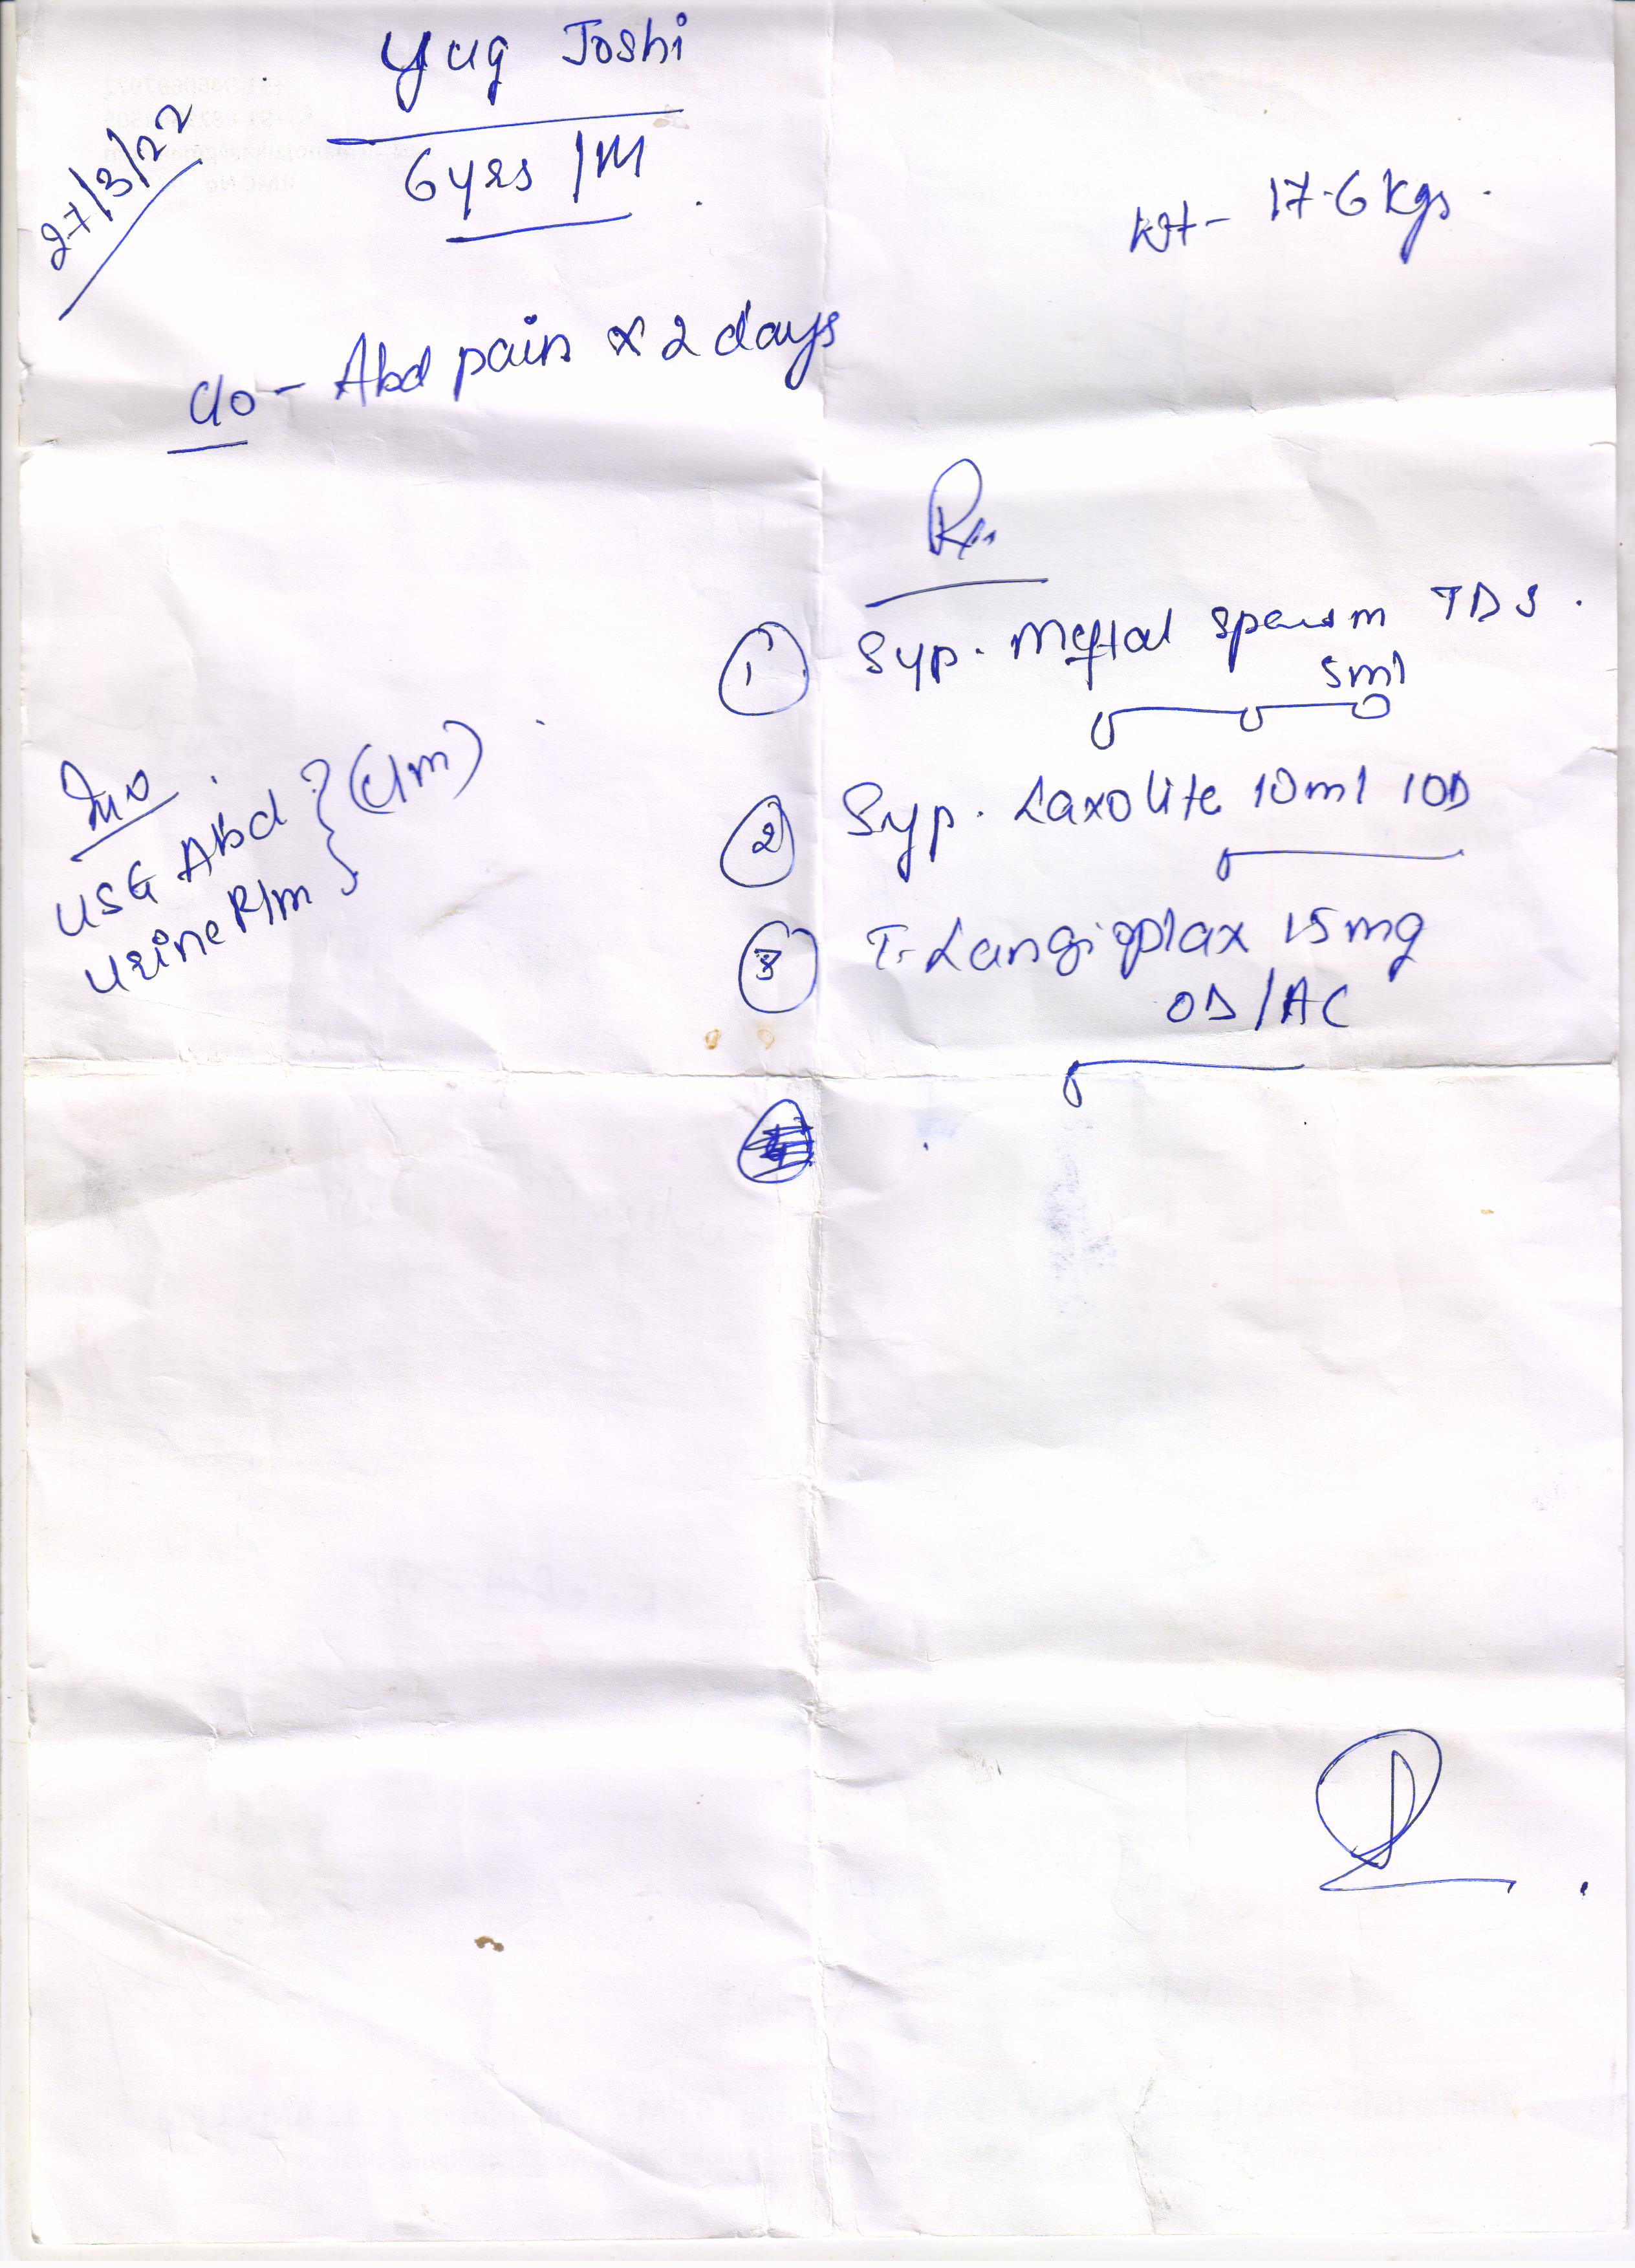 Yug Joshi
27/3/22
6yrs / M
Wt - 17.6 Kgs.
C/o - Abd pain x 2 days
Rx
1 Syp. Meftal Spasm TDS.
5ml
2 Syp. Laxolite 10ml OD
3 T. Langioplax 15mg
OD / AC
Inv
USG Abd
Urine R/m